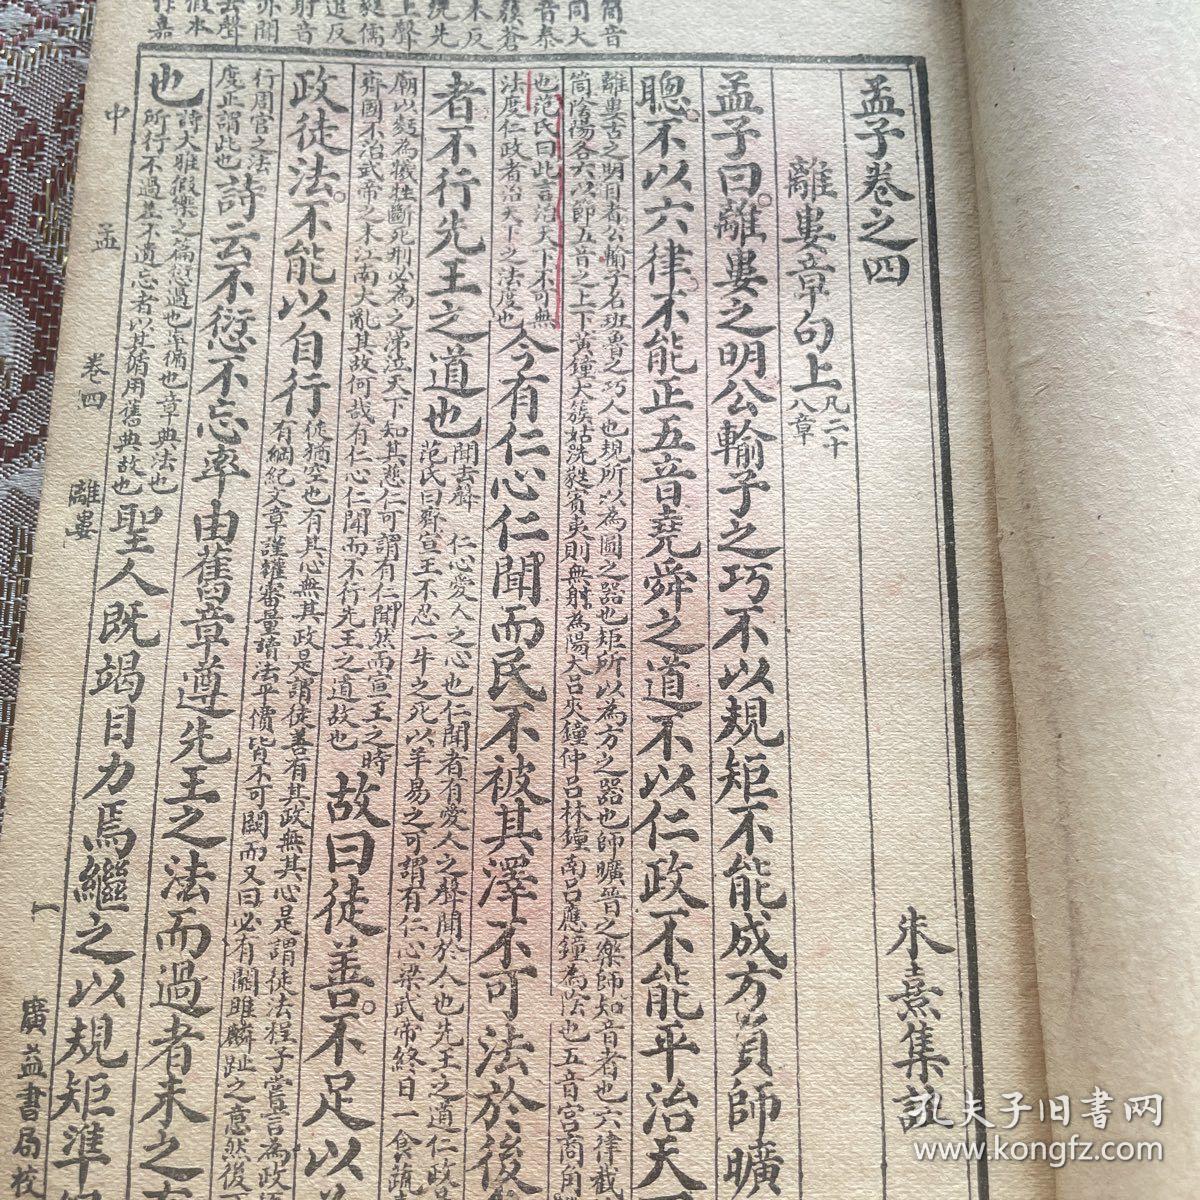 孟子卷之四
朱熹集註
離婁章句上
凡二十
八章
孟子曰離婁之明公輸子之巧不以規矩不能成方員師曠
聰不以六律不能正五音堯舜之道不以仁政不能平治天
離婁古之明目者公輸子名班魯之巧人也規所以為圓之器也矩所以為方之器也師曠晉之樂師知音者也六律截
筒陰陽各六以節五音之上下黃鐘大簇姑洗蕤賓夷則無射為陽大呂夾鐘仲呂林鐘南呂應鐘為陰也五音宮商角
也范氏曰此言治天下不可無
法度仁政者治天下之法度也
今有仁心仁聞而民不被其澤不可法於後
者不行先王之道也
聞去聲 仁心愛人之心也仁聞者有愛人之聲聞於人也先王之道仁政
范氏曰齊宣王不忍一牛之死以羊易之可謂有仁心梁武帝終日一食蔬
廟以麪為犧牲斷死刑必為之涕泣天下知其慈仁可謂有仁聞然而宣王之時
齊國不治武帝之末江南大亂其故何哉有仁心仁聞而不行先王之道故也
故曰徒善不足以
政徒法不能以自行
徒猶空也有其心無其政是謂徒善有其政無其心是謂徒法程子嘗言為政
有綱紀文章謹權審量讀法平價皆不可闕而又曰必有關雎麟趾之意然後可
行周官之法
度正謂此也
詩云不愆不忘率由舊章遵先王之法而過者未之有
也
詩大雅假樂之篇愆過也率循也章典法也
所行不過差不遺忘者以其循用舊典故也
聖人既竭目力焉繼之以規矩準
中
孟
卷四
離婁
一
廣益書局校
孔夫子旧书网
www.kongfz.com